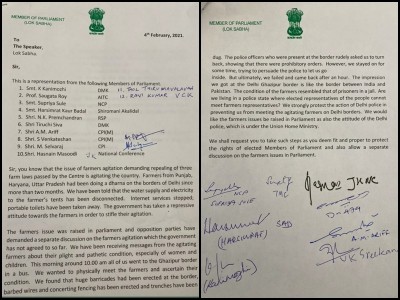 MEMBER OF PARLIAMENT
(LOK SABHA)
4th February, 2021.
To
The Speaker,
Lok Sabha.
Sir,
This is a representation from the following Members of Parliament.
1. Smt. K Kanimozhi DMK 11. THOL THIRUMAVALAVAN
2. Prof. Sougata Roy AITC 12. RAVI KUMAR VCK
3. Smt. Supriya Sule NCP
4. Smt. Harsimrat Kaur Badal Shiromani Akalidal
5. Shri. N.K. Premchandran RSP
6. Shri Tiruchi Siva DMK
7. Shri A.M. Ariff CPI(M)
8. Shri S. Venkateshan CPI(M)
9. Shri. M. Selvaraj CPI
10. Shri Hasnain Masoodi JK National Conference
Sir, you know that the issue of farmers agitation demanding repealing of three
farm laws passed by the Centre is agitating the country. Farmers from Punjab,
Haryana, Uttar Pradesh had been doing a dharna on the borders of Delhi since
more than two months. We have been told that the water supply and electricity
to the farmer's tents has been disconnected. Internet services stopped,
portable toilets have been taken away. The government has taken a repressive
attitude towards the farmers in order to stifle their agitation.
The farmers issue was raised in parliament and opposition parties have
demanded a separate discussion on the farmers agitation which the government
has not agreed to so far. We have been receiving messages from the agitating
farmers about their plight and pathetic condition, especially of women and
children. This morning around 10.00 am all of us went to the Ghaizpur border
in a bus. We wanted to physically meet the farmers and ascertain their
condition. We found that huge barricades had been erected at the border,
barbed wires and concerting fencing has been erected and trenches have been
MEMBER OF PARLIAMENT
(LOK SABHA)
dug. The police officers who were present at the border rudely asked us to turn
back, showing that there were prohibitory orders. However, we stayed on for
some time, trying to persuade the police to let us go
inside. But ultimately, we failed and came back after an hour. The impression we
got at the Delhi Ghaizpur border is like the border between India and
Pakistan. The condition of the farmers resembled that of prisoners in a jail. Are
we living in a police state where elected representatives of the people cannot
meet farmers representatives? We strongly protest the action of Delhi police in
preventing us from meeting the agitating farmers on Delhi borders. We would
like the farmers issues be raised in Parliament as also the attitude of the Delhi
police, which is under the Union Home Ministry.
We shall request you to take such steps as you deem fit and proper to protect
the rights of elected Members of Parliament and also allow a separate
discussion on the farmers issues in Parliament.
JKNC
(HARSIMRAT) SAD
(Kanimozhi)
A.M. Ariff